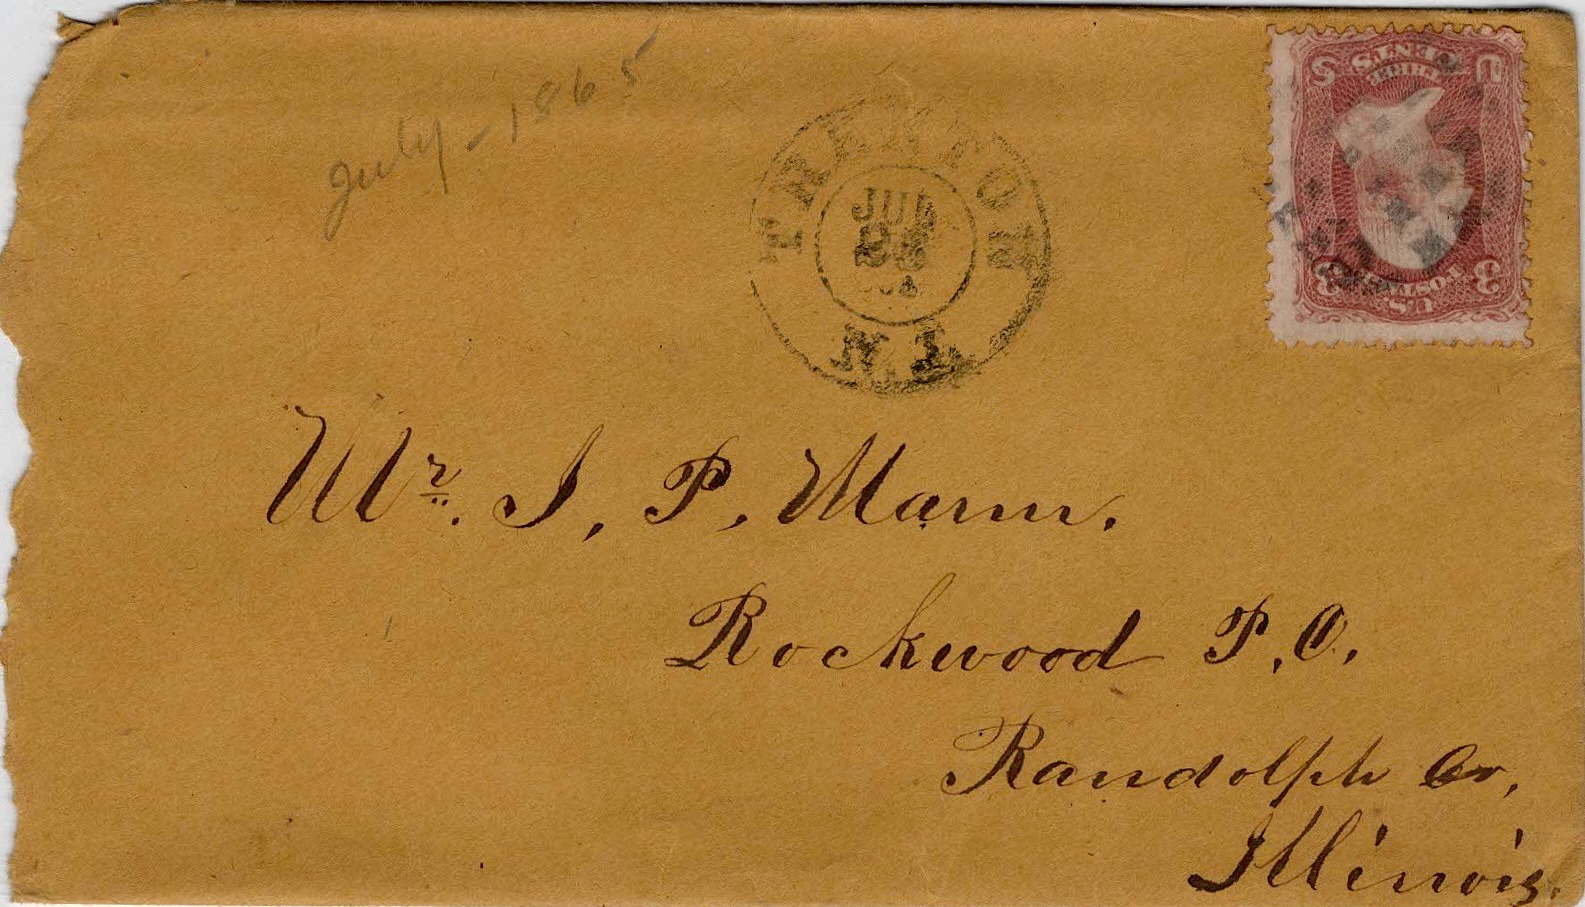 July - 1865
TRENTON
JUL
TN
U S
THREE
CENTS
3 3
U.S. POSTAGE
Mr. J. P. Mann.
Rockwood P.O.
Randolph Co,
Illinois.